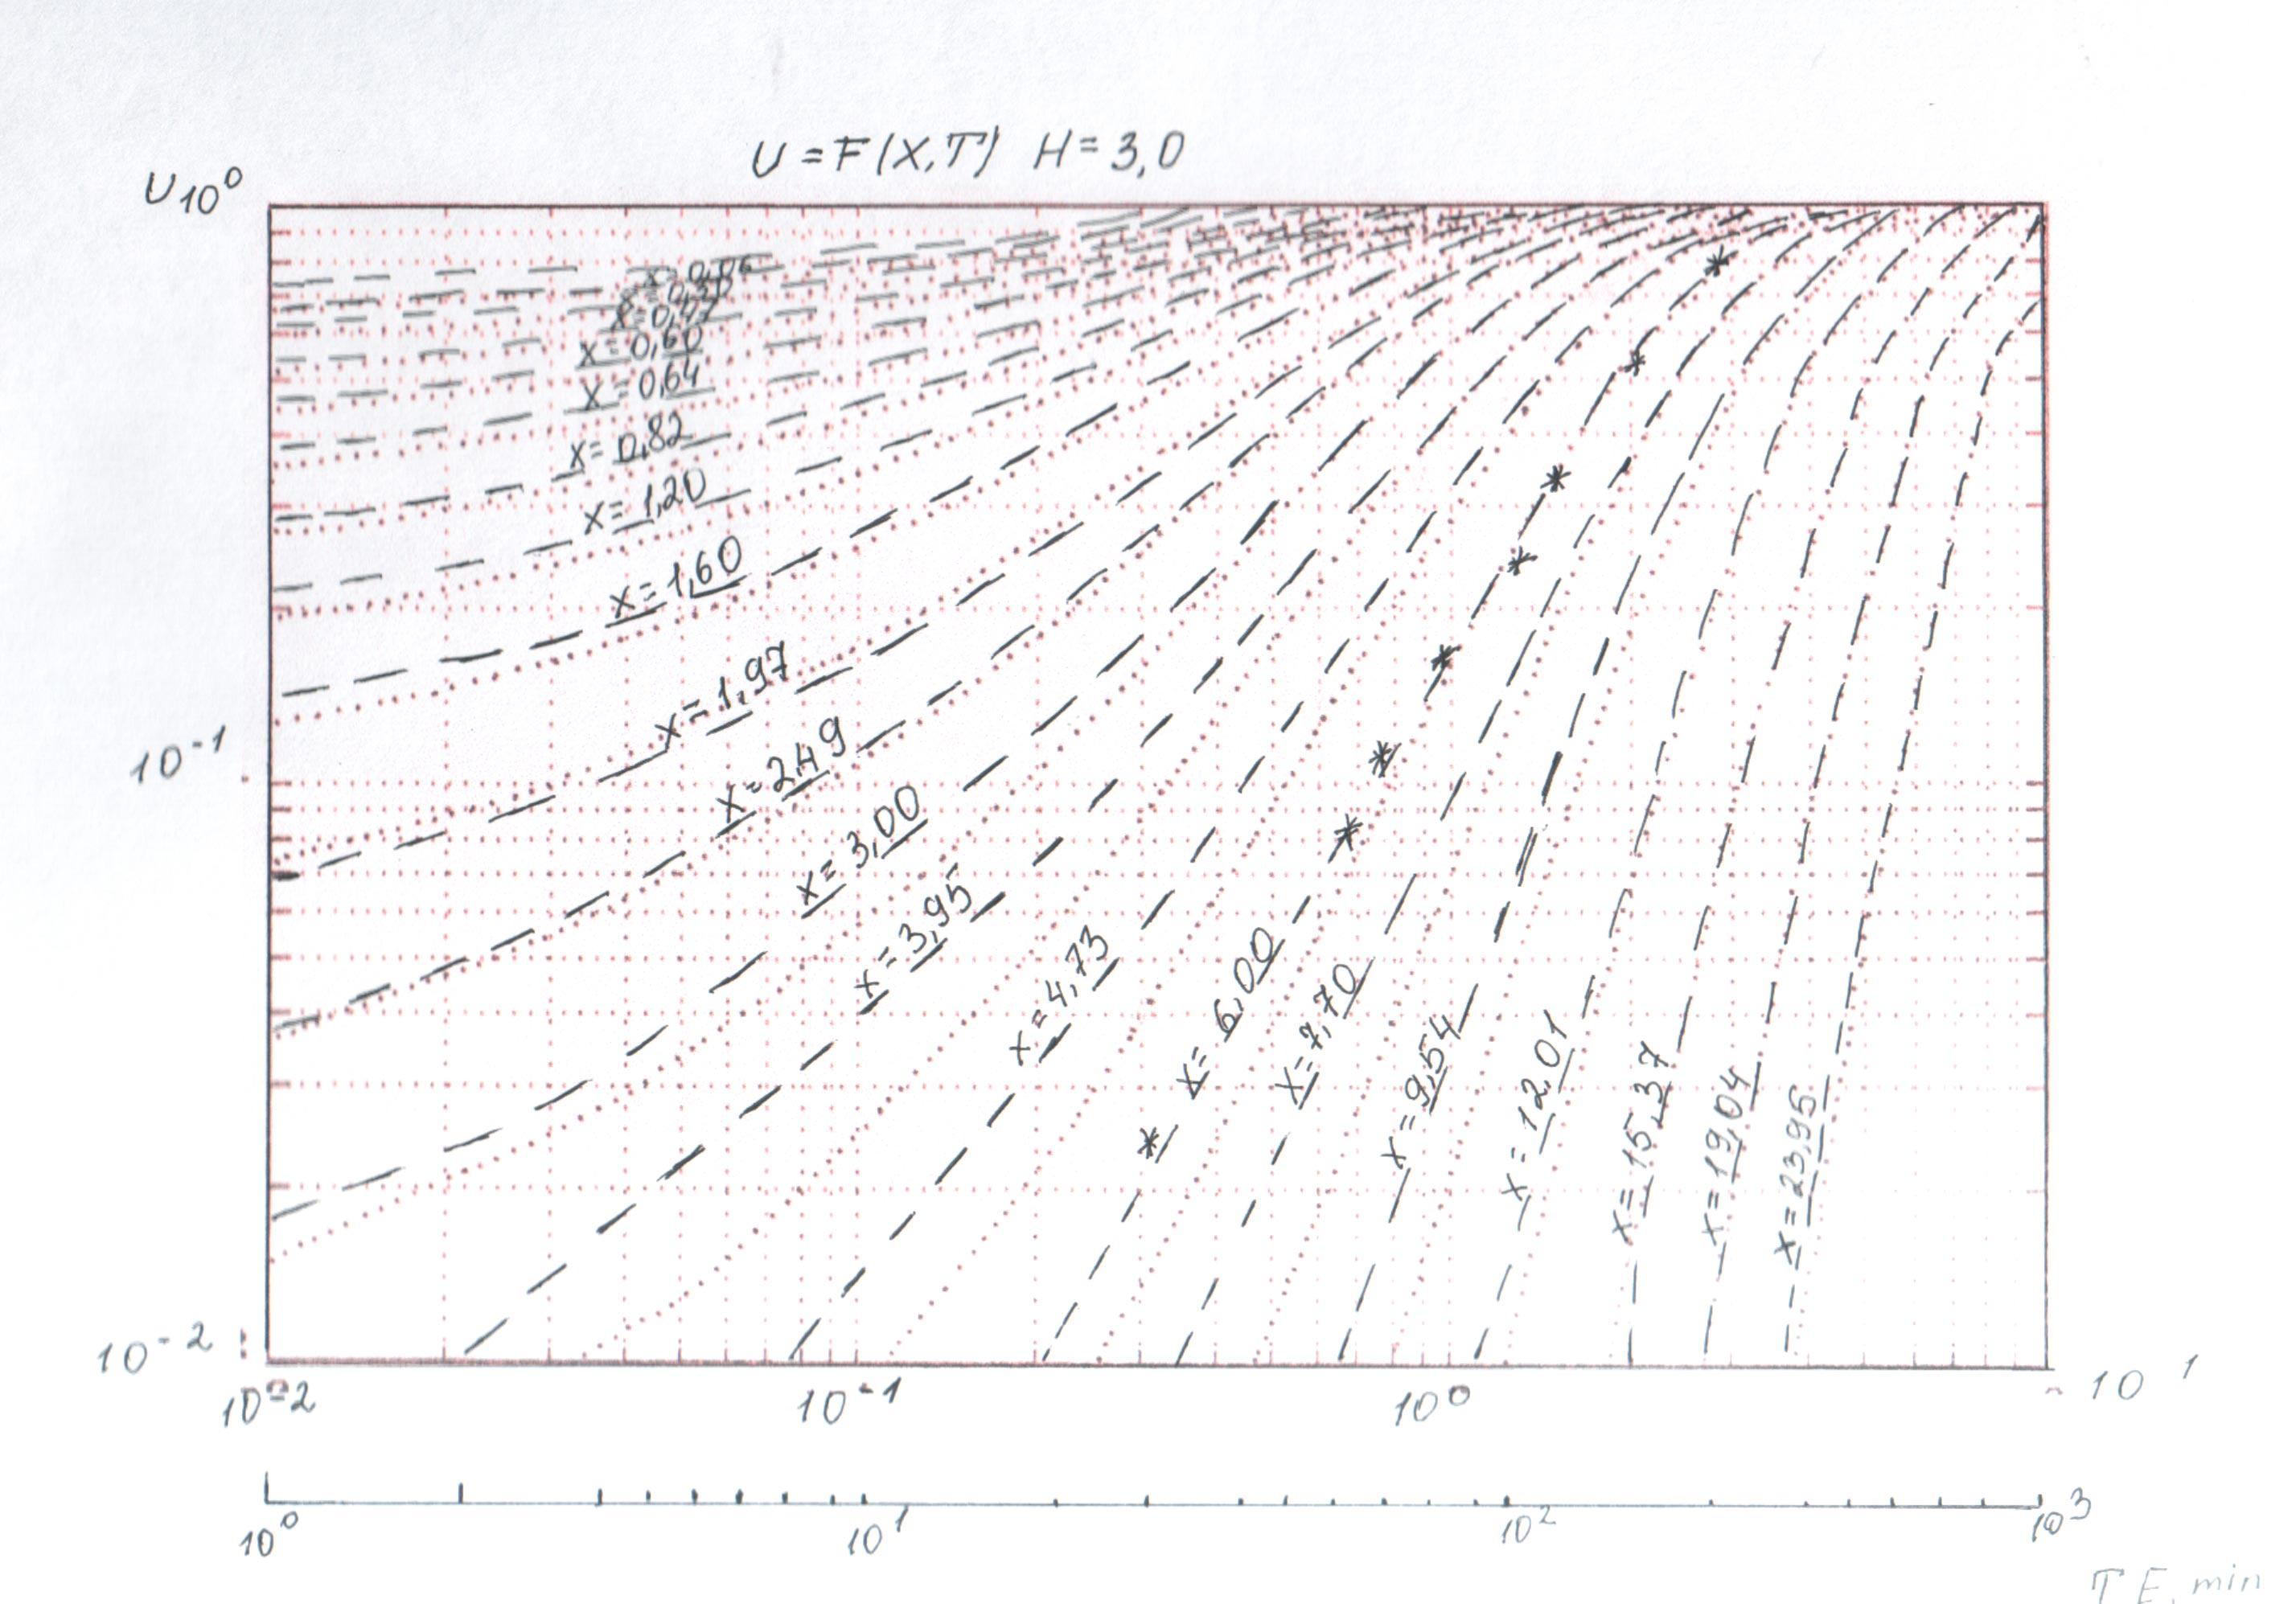 U = F(X,T) H = 3,0
U 10⁰
x = 0,06
x = 0,30
x = 0,47
x = 0,60
x = 0,64
x = 0,82
x = 1,20
x = 1,60
x = 1,97
x = 2,49
x = 3,00
x = 3,95
x = 4,73
x = 6,00
x = 7,70
x = 9,54
x = 12,01
x = 15,37
x = 19,04
x = 23,95
10⁻¹
10⁻²
10⁻² 10⁻¹ 10⁰ 10¹
10⁰ 10¹ 10² 10³
T E, min